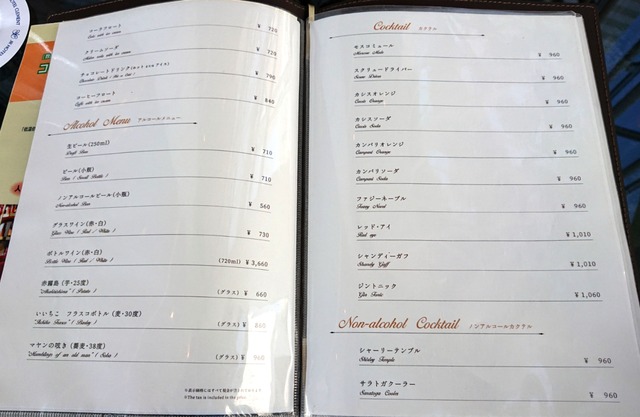 コークフロート ¥ 720
Coke with ice cream
クリームソーダ ¥ 720
Melon soda with ice cream
チョコレートドリンク(Hot or アイス) ¥ 790
コーヒーフロート ¥ 840
Cafe with ice cream
Alcohol Menu アルコールメニュー
生ビール(250ml) ¥ 710
Draft Beer
ビール(小瓶) ¥ 710
Beer ( Small Bottle )
ノンアルコールビール(小瓶) ¥ 560
Non-alcohol Beer
グラスワイン(赤・白) ¥ 730
Glass Wine ( Red / White )
ボトルワイン(赤・白) (720ml) ¥ 3,660
Bottle Wine ( Red / White )
赤霧島 (芋・25度) (グラス) ¥ 660
( Potato )
いいちこ フラスコボトル (麦・30度) (グラス) ¥ 860
( Barley )
マヤンの呟き (蕎麦・38度) (グラス) ¥ 960
"Mumblings of an old man" ( Soba )
※The tax is included in the price.
Cocktail カクテル
モスコミュール ¥ 960
Moscow Mule
スクリュードライバー ¥ 960
Screw Driver
カシスオレンジ ¥ 960
Cassis Orange
カシスソーダ ¥ 960
Cassis Soda
カンパリオレンジ ¥ 960
Campari Orange
カンパリソーダ ¥ 960
Campari Soda
ファジーネーブル ¥ 960
Fuzzy Navel
レッド・アイ ¥ 1,010
Red eye
シャンディーガフ ¥ 1,010
Shandy Gaff
ジントニック ¥ 1,060
Gin Tonic
Non-alcohol Cocktail ノンアルコールカクテル
シャーリーテンプル ¥ 960
Shirley Temple
サラトガクーラー ¥ 960
Saratoga Cooler